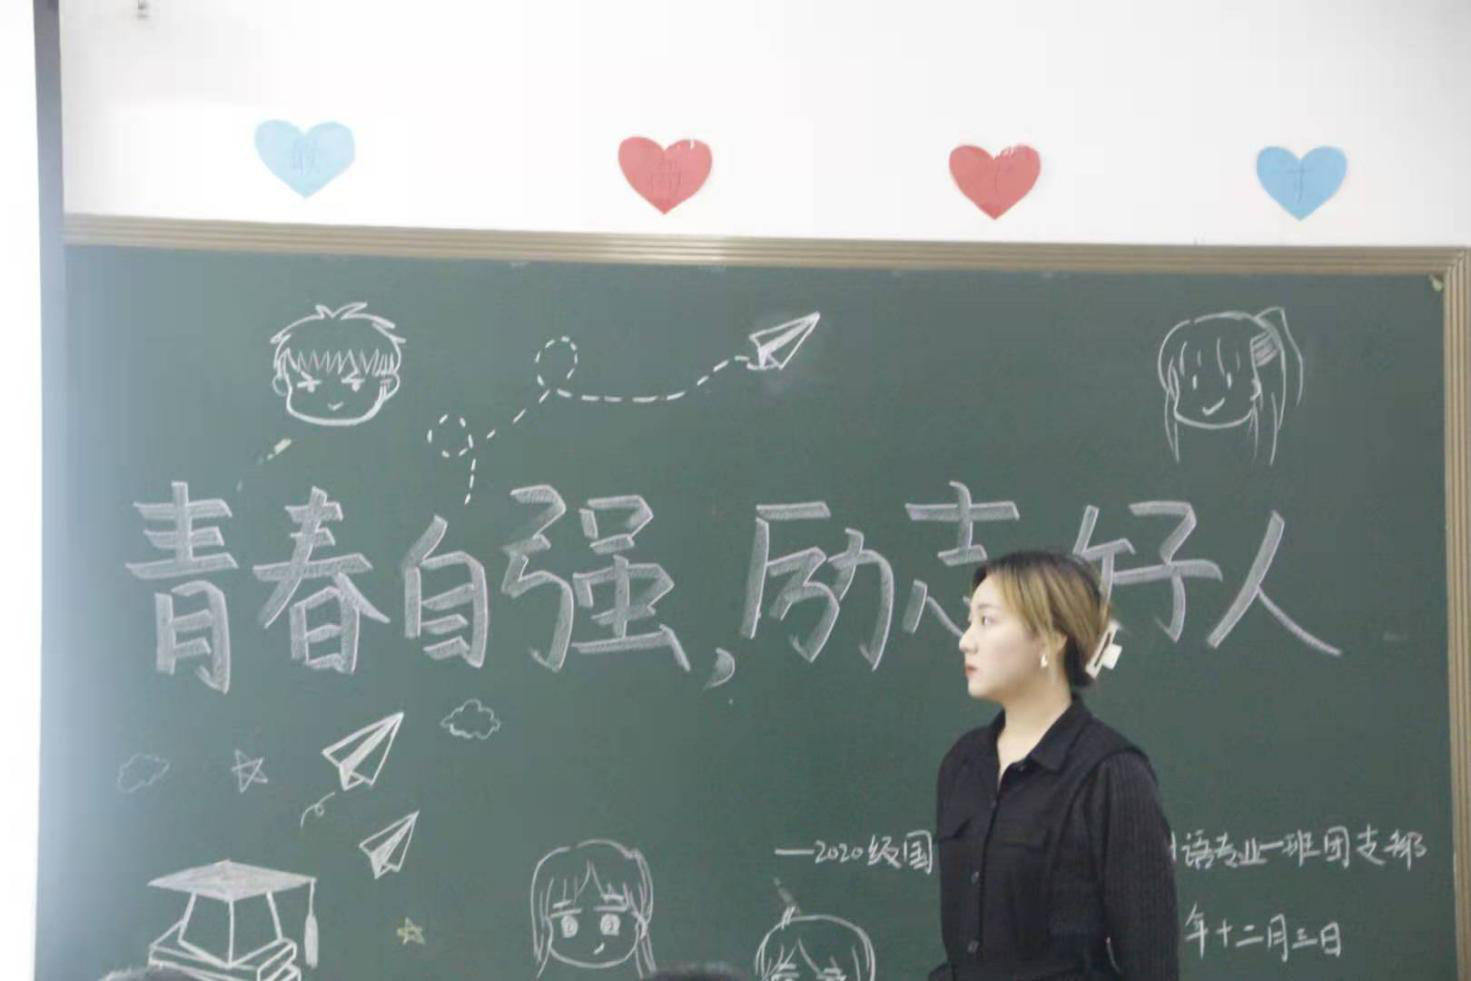 青春自强,励志好人
—2020级国 语专业一班团支部
年十二月三日